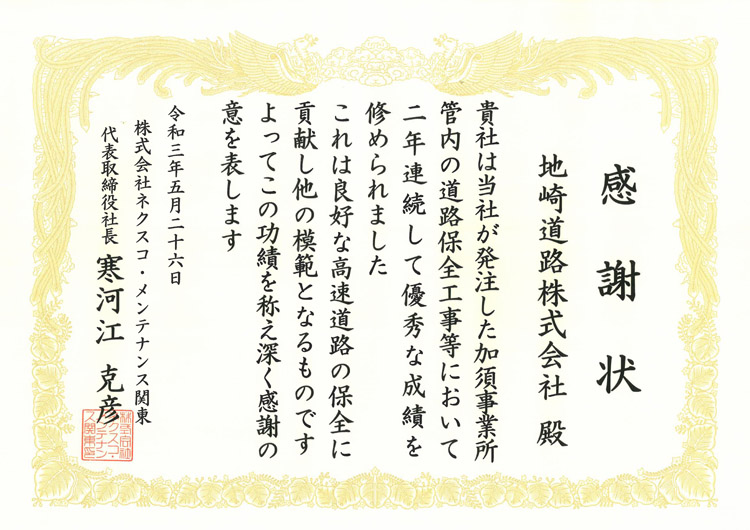 感謝状
地崎道路株式会社 殿
貴社は当社が発注した加須事業所
管内の道路保全工事等において
二年連続して優秀な成績を
修められました
これは良好な高速道路の保全に
貢献し他の模範となるものです
よってこの功績を称え深く感謝の
意を表します
令和三年五月二十六日
株式会社ネクスコ・メンテナンス関東
代表取締役社長 寒河江 克彦